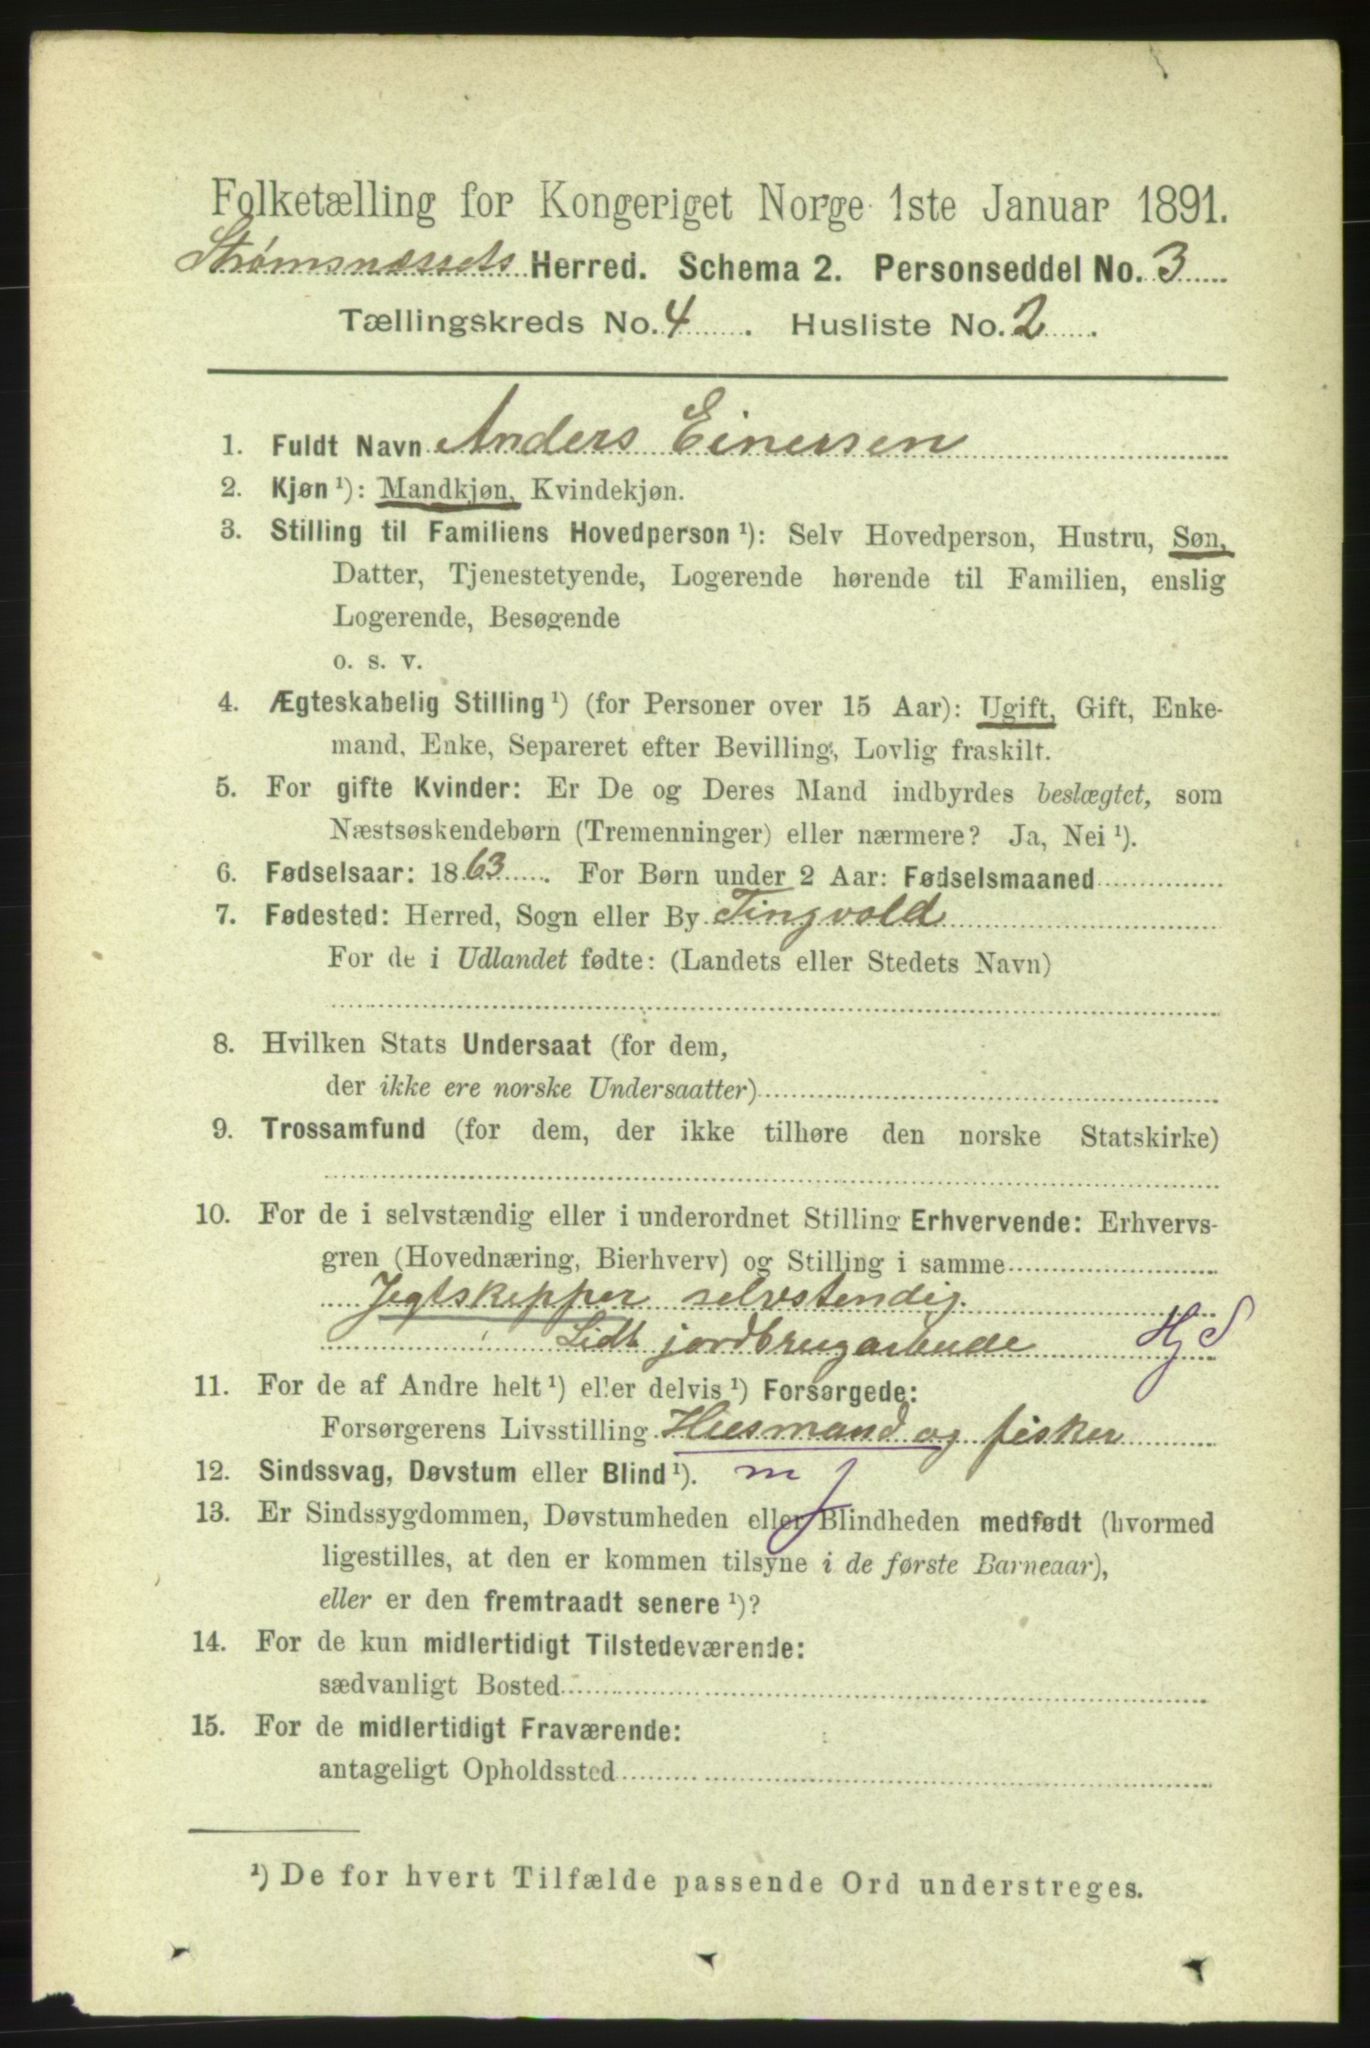 Folketælling for Kongeriget Norge 1ste Januar 1891.
Strømsnæssets Herred. Schema 2. Personseddel No. 3
Tællingskreds No. 4. Husliste No. 2.
1. Fuldt Navn Anders Einersen
2. Kjøn ¹): Mandkjøn, Kvindekjøn.
3. Stilling til Familiens Hovedperson ¹): Selv Hovedperson, Hustru, Søn,
Datter, Tjenestetyende, Logerende hørende til Familien, enslig
Logerende, Besøgende
o. s. v.
4. Ægteskabelig Stilling ¹) (for Personer over 15 Aar): Ugift, Gift, Enke-
mand, Enke, Separeret efter Bevilling, Lovlig fraskilt.
5. For gifte Kvinder: Er De og Deres Mand indbyrdes beslægtet, som
Næstsøskendebørn (Tremenninger) eller nærmere? Ja, Nei ¹).
6. Fødselsaar: 1863. For Børn under 2 Aar: Fødselsmaaned
7. Fødested: Herred, Sogn eller By Tingvold
For de i Udlandet fødte: (Landets eller Stedets Navn)
8. Hvilken Stats Undersaat (for dem,
der ikke ere norske Undersaatter)
9. Trossamfund (for dem, der ikke tilhøre den norske Statskirke)
10. For de i selvstændig eller i underordnet Stilling Erhvervende: Erhvervs-
gren (Hovednæring, Bierhverv) og Stilling i samme
Jegtskipper selvstendig.
Lidt jordbrugarbeide
11. For de af Andre helt ¹) eller delvis ¹) Forsørgede:
Forsørgerens Livsstilling Husmand og fisker
12. Sindssvag, Døvstum eller Blind ¹). m
13. Er Sindssygdommen, Døvstumheden eller Blindheden medfødt (hvormed
ligestilles, at den er kommen tilsyne i de første Barneaar),
eller er den fremtraadt senere ¹)?
14. For de kun midlertidigt Tilstedeværende:
sædvanligt Bosted
15. For de midlertidigt Fraværende:
antageligt Opholdssted
¹) De for hvert Tilfælde passende Ord understreges.